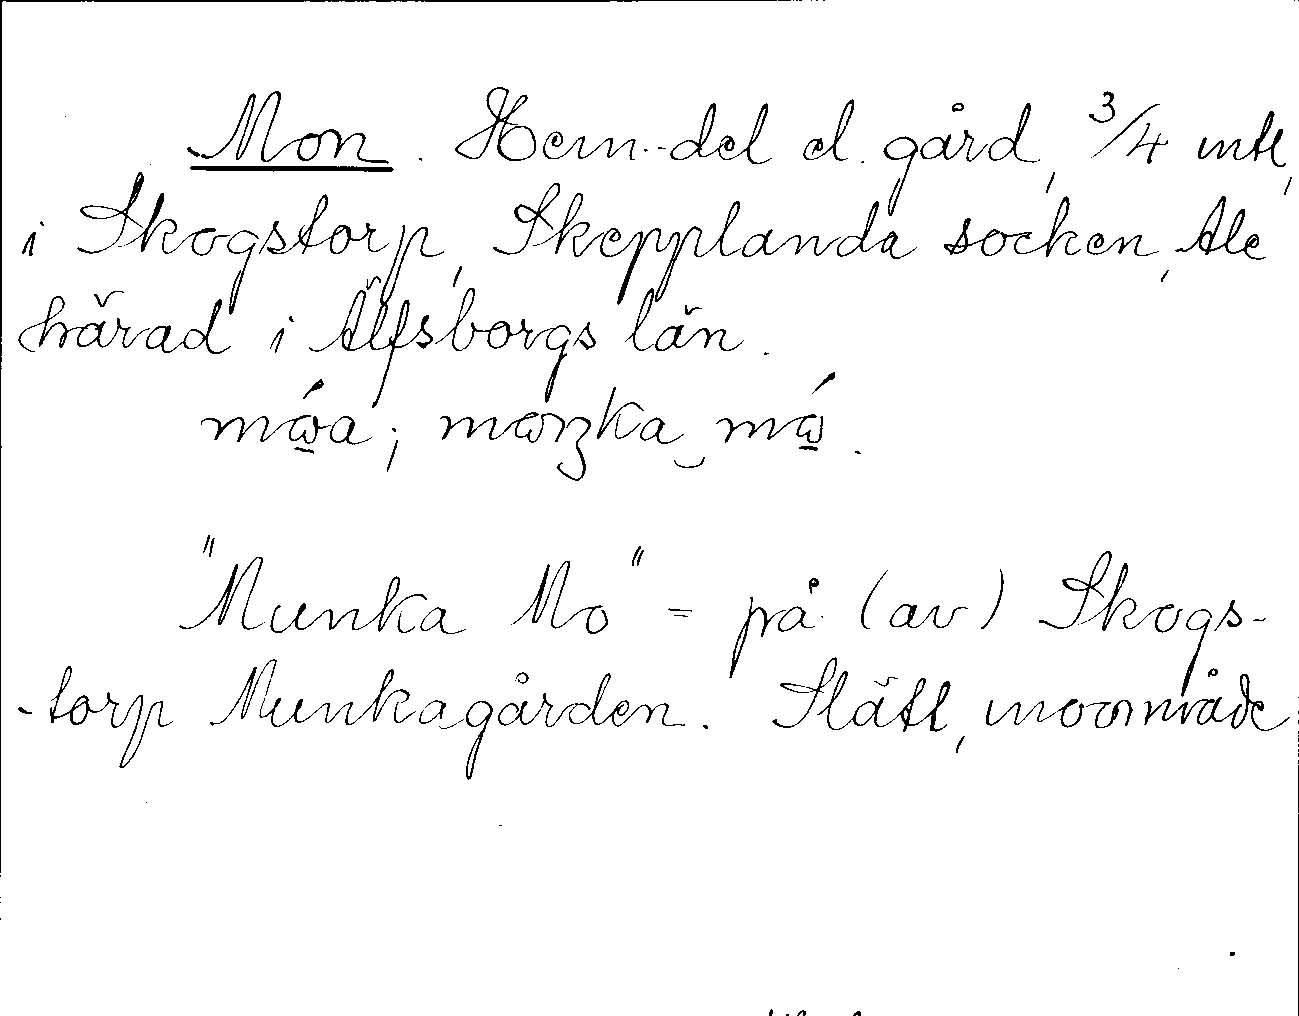 Mon. Hem.-del el. gård, 3/4 mtl,
i Skogstorp, Skepplanda socken, Ale
härad i Älfsborgs län.
"Munka Mo" = på (av) Skogs-
-torp Munkagården. Slätt, moområde